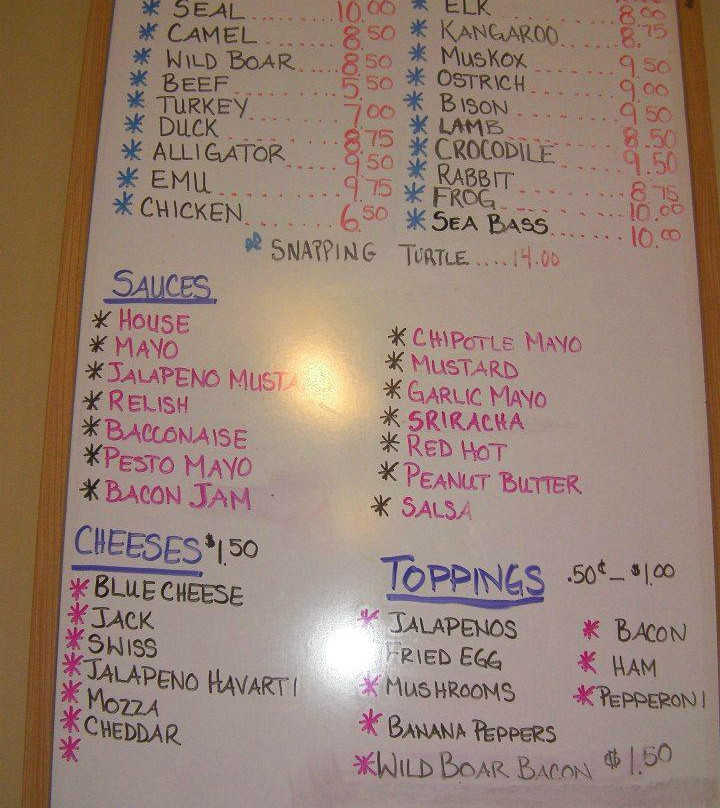 * SEAL 10.00
* CAMEL 8.50
* WILD BOAR 8.50
* BEEF 5.50
* TURKEY 7.00
* DUCK 8.75
* ALLIGATOR 9.50
* EMU 9.75
* CHICKEN 6.50
* ELK 8.00
* KANGAROO 8.75
* MUSKOX 9.50
* OSTRICH 9.00
* BISON 9.50
* LAMB 8.50
* CROCODILE 9.50
* RABBIT 8.75
* FROG 10.00
* SEA BASS 10.00
* SNAPPING TURTLE....14.00
SAUCES
* HOUSE
* MAYO
* JALAPENO MUSTA
* RELISH
* BACCONAISE
* PESTO MAYO
* BACON JAM
* CHIPOTLE MAYO
* MUSTARD
* GARLIC MAYO
* SRIRACHA
* RED HOT
* PEANUT BUTTER
* SALSA
CHEESES $1.50
* BLUE CHEESE
* JACK
* SWISS
* JALAPENO HAVARTI
* MOZZA
* CHEDDAR
*
TOPPINGS .50¢ - $1.00
* JALAPENOS
FRIED EGG
* MUSHROOMS
* BANANA PEPPERS
* WILD BOAR BACON $1.50
* BACON
* HAM
* PEPPERONI